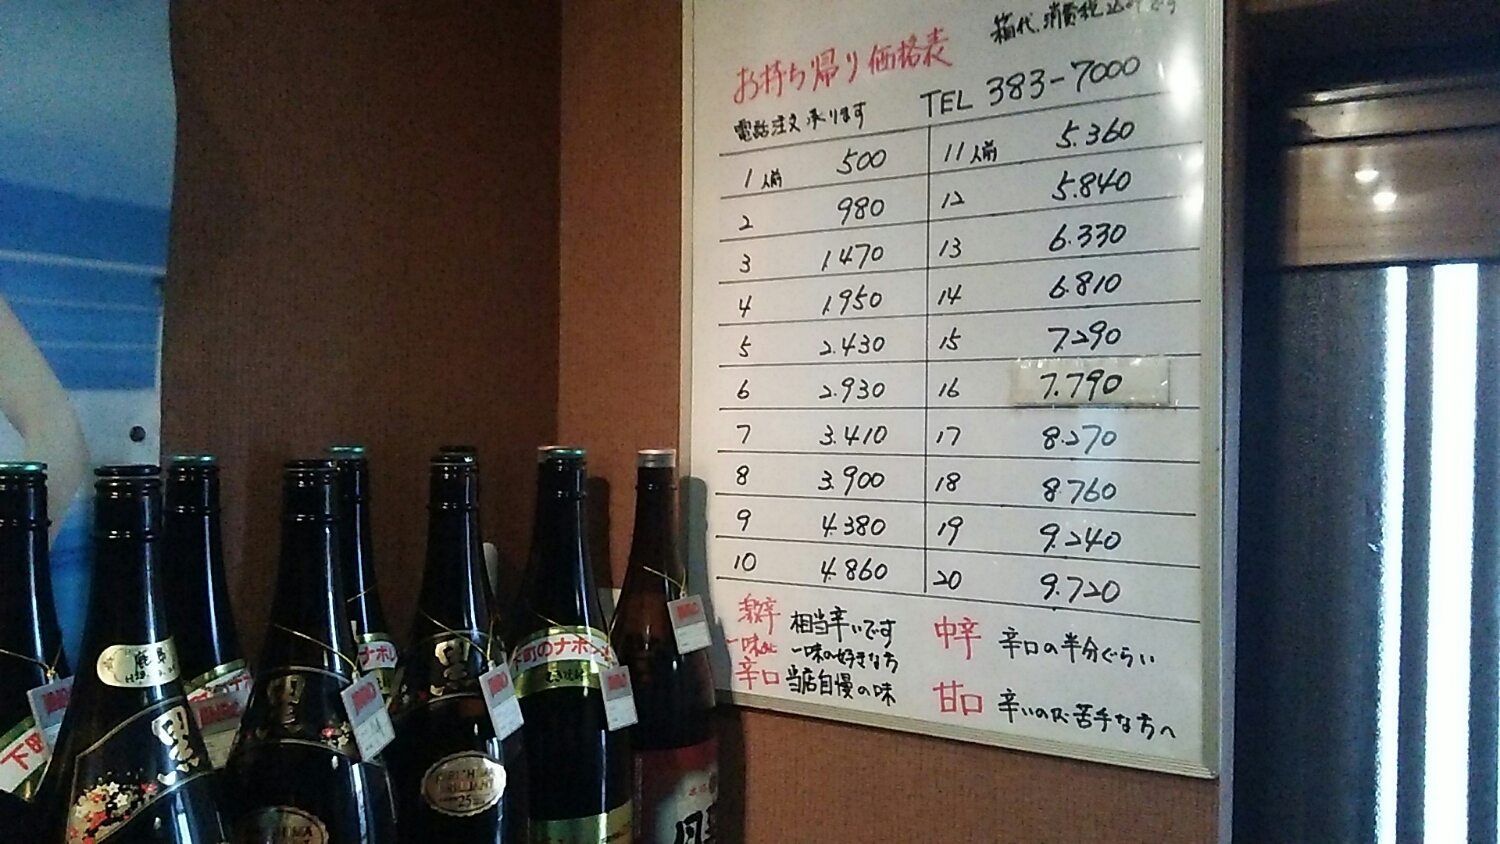 箱代、消費税込みです
お持ち帰り価格表
電話注文承ります
TEL 383-7000
1人前 500
2 980
3 1.470
4 1.950
5 2.430
6 2.930
7 3.410
8 3.900
9 4.380
10 4.860
11人前 5.360
12 5.840
13 6.330
14 6.810
15 7.290
16 7.790
17 8.270
18 8.760
19 9.240
20 9.720
激辛 相当辛いです
一味の好きな方
辛口 当店自慢の味
中辛 辛口の半分ぐらい
甘口 辛いのが苦手な方へ
黒
黒
黒
下町のナポレ
ナポレ
下町
25